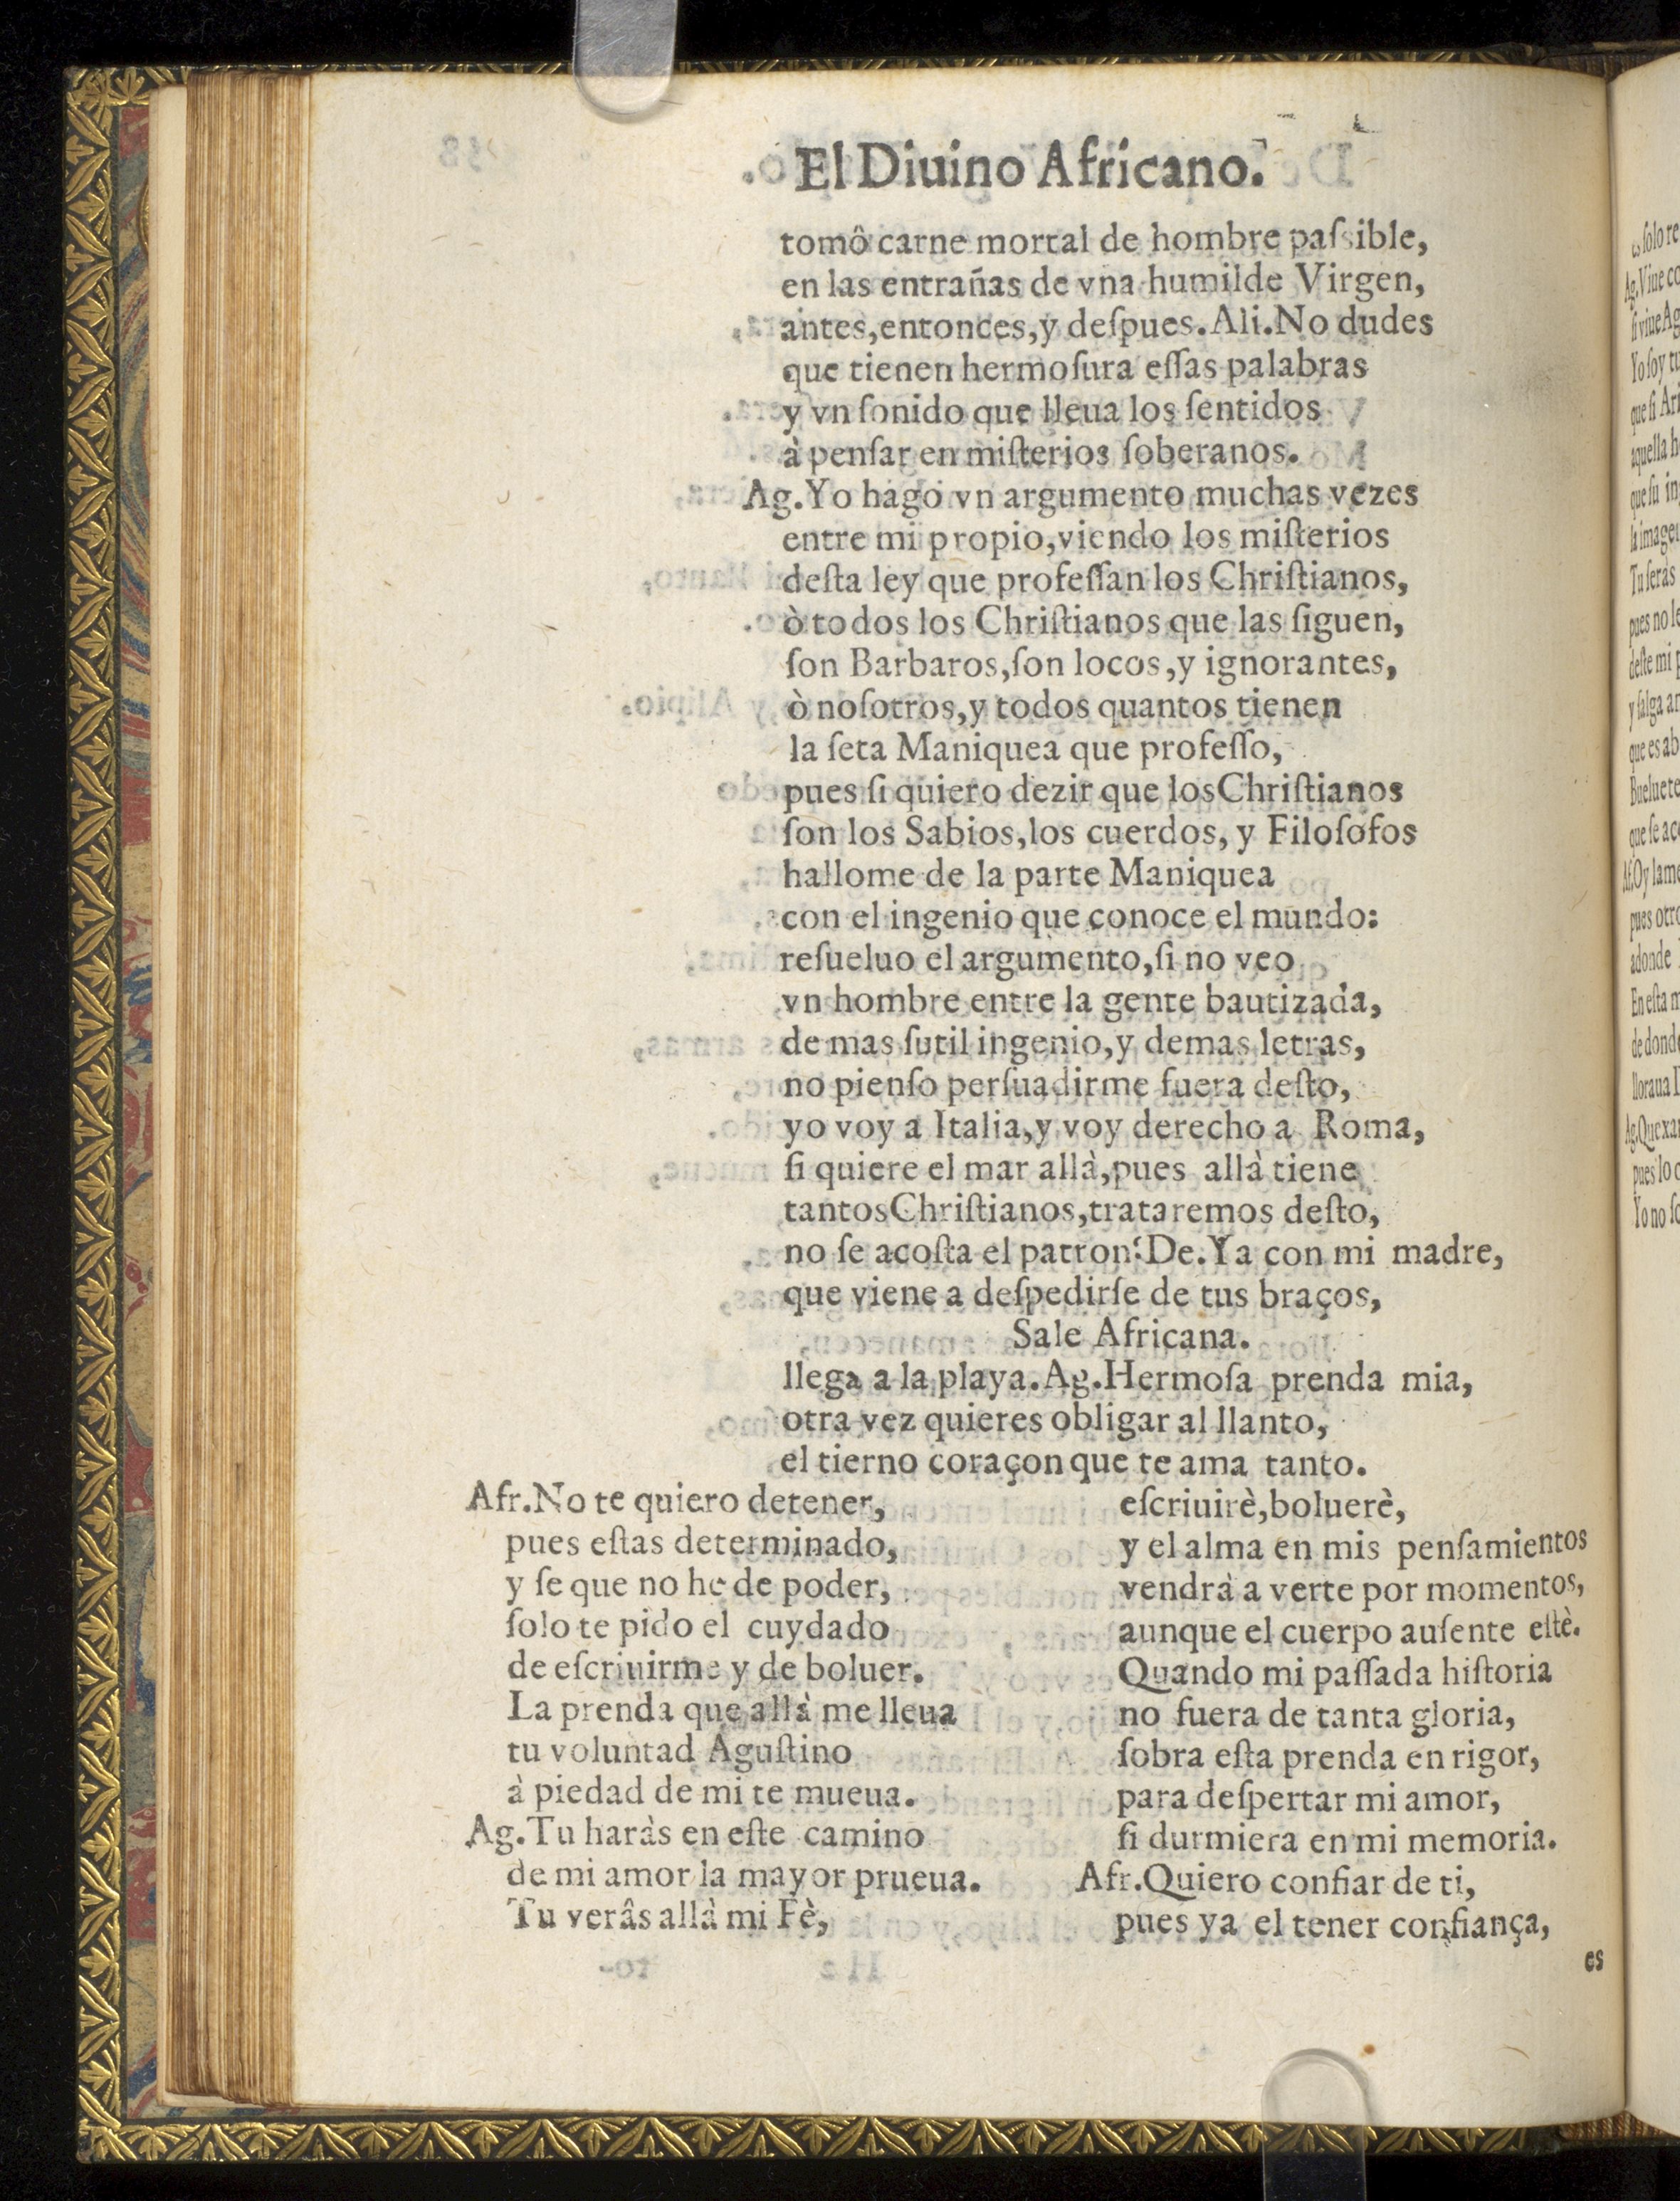 El Diuino Africano.
tomô carne mortal de hombre paſsible,
en las entrañas de vna humilde Virgen,
antes,entonces,y deſpues. Ali. No dudes
que tienen hermoſura eſſas palabras
y vn ſonido que lleua los ſentidos
à penſar en miſterios ſoberanos.
Ag. Yo hago vn argumento muchas vezes
entre mi propio,viendo los miſterios
deſta ley que profeſſan los Chriſtianos,
ò todos los Chriſtianos que las ſiguen,
ſon Barbaros,ſon locos,y ignorantes,
ò noſotros,y todos quantos tienen
la ſeta Maniquea que profeſſo,
pues ſi quiero dezir que los Chriſtianos
ſon los Sabios,los cuerdos, y Filoſofos
hallome de la parte Maniquea
con el ingenio que conoce el mundo:
reſueluo el argumento,ſi no veo
vn hombre entre la gente bautizada,
de mas ſutil ingenio,y demas letras,
no pienſo perſuadirme fuera deſto,
yo voy a Italia,y voy derecho a Roma,
ſi quiere el mar allà,pues allà tiene
tantos Chriſtianos,trataremos deſto,
no ſe acoſta el patron? De. Ya con mi madre,
que viene a deſpedirſe de tus braços,
Sale Africana.
llega a la playa. Ag. Hermoſa prenda mia,
otra vez quieres obligar al llanto,
el tierno coraçon que te ama tanto.
Afr. No te quiero detener,
pues eſtas determinado,
y ſe que no he de poder,
ſolo te pido el cuydado
de eſcriuirme y de boluer.
La prenda que allà me lleua
tu voluntad Aguſtino
à piedad de mi te mueua.
Ag. Tu haràs en eſte camino
de mi amor la mayor prueua.
Tu verâs allà mi Fè,
eſcriuirè,boluerè,
y el alma en mis penſamientos
vendrà a verte por momentos,
aunque el cuerpo auſente eſtè.
Quando mi paſſada hiſtoria
no fuera de tanta gloria,
ſobra eſta prenda en rigor,
para deſpertar mi amor,
ſi durmiera en mi memoria.
Afr. Quiero confiar de ti,
pues ya el tener confiança,
es